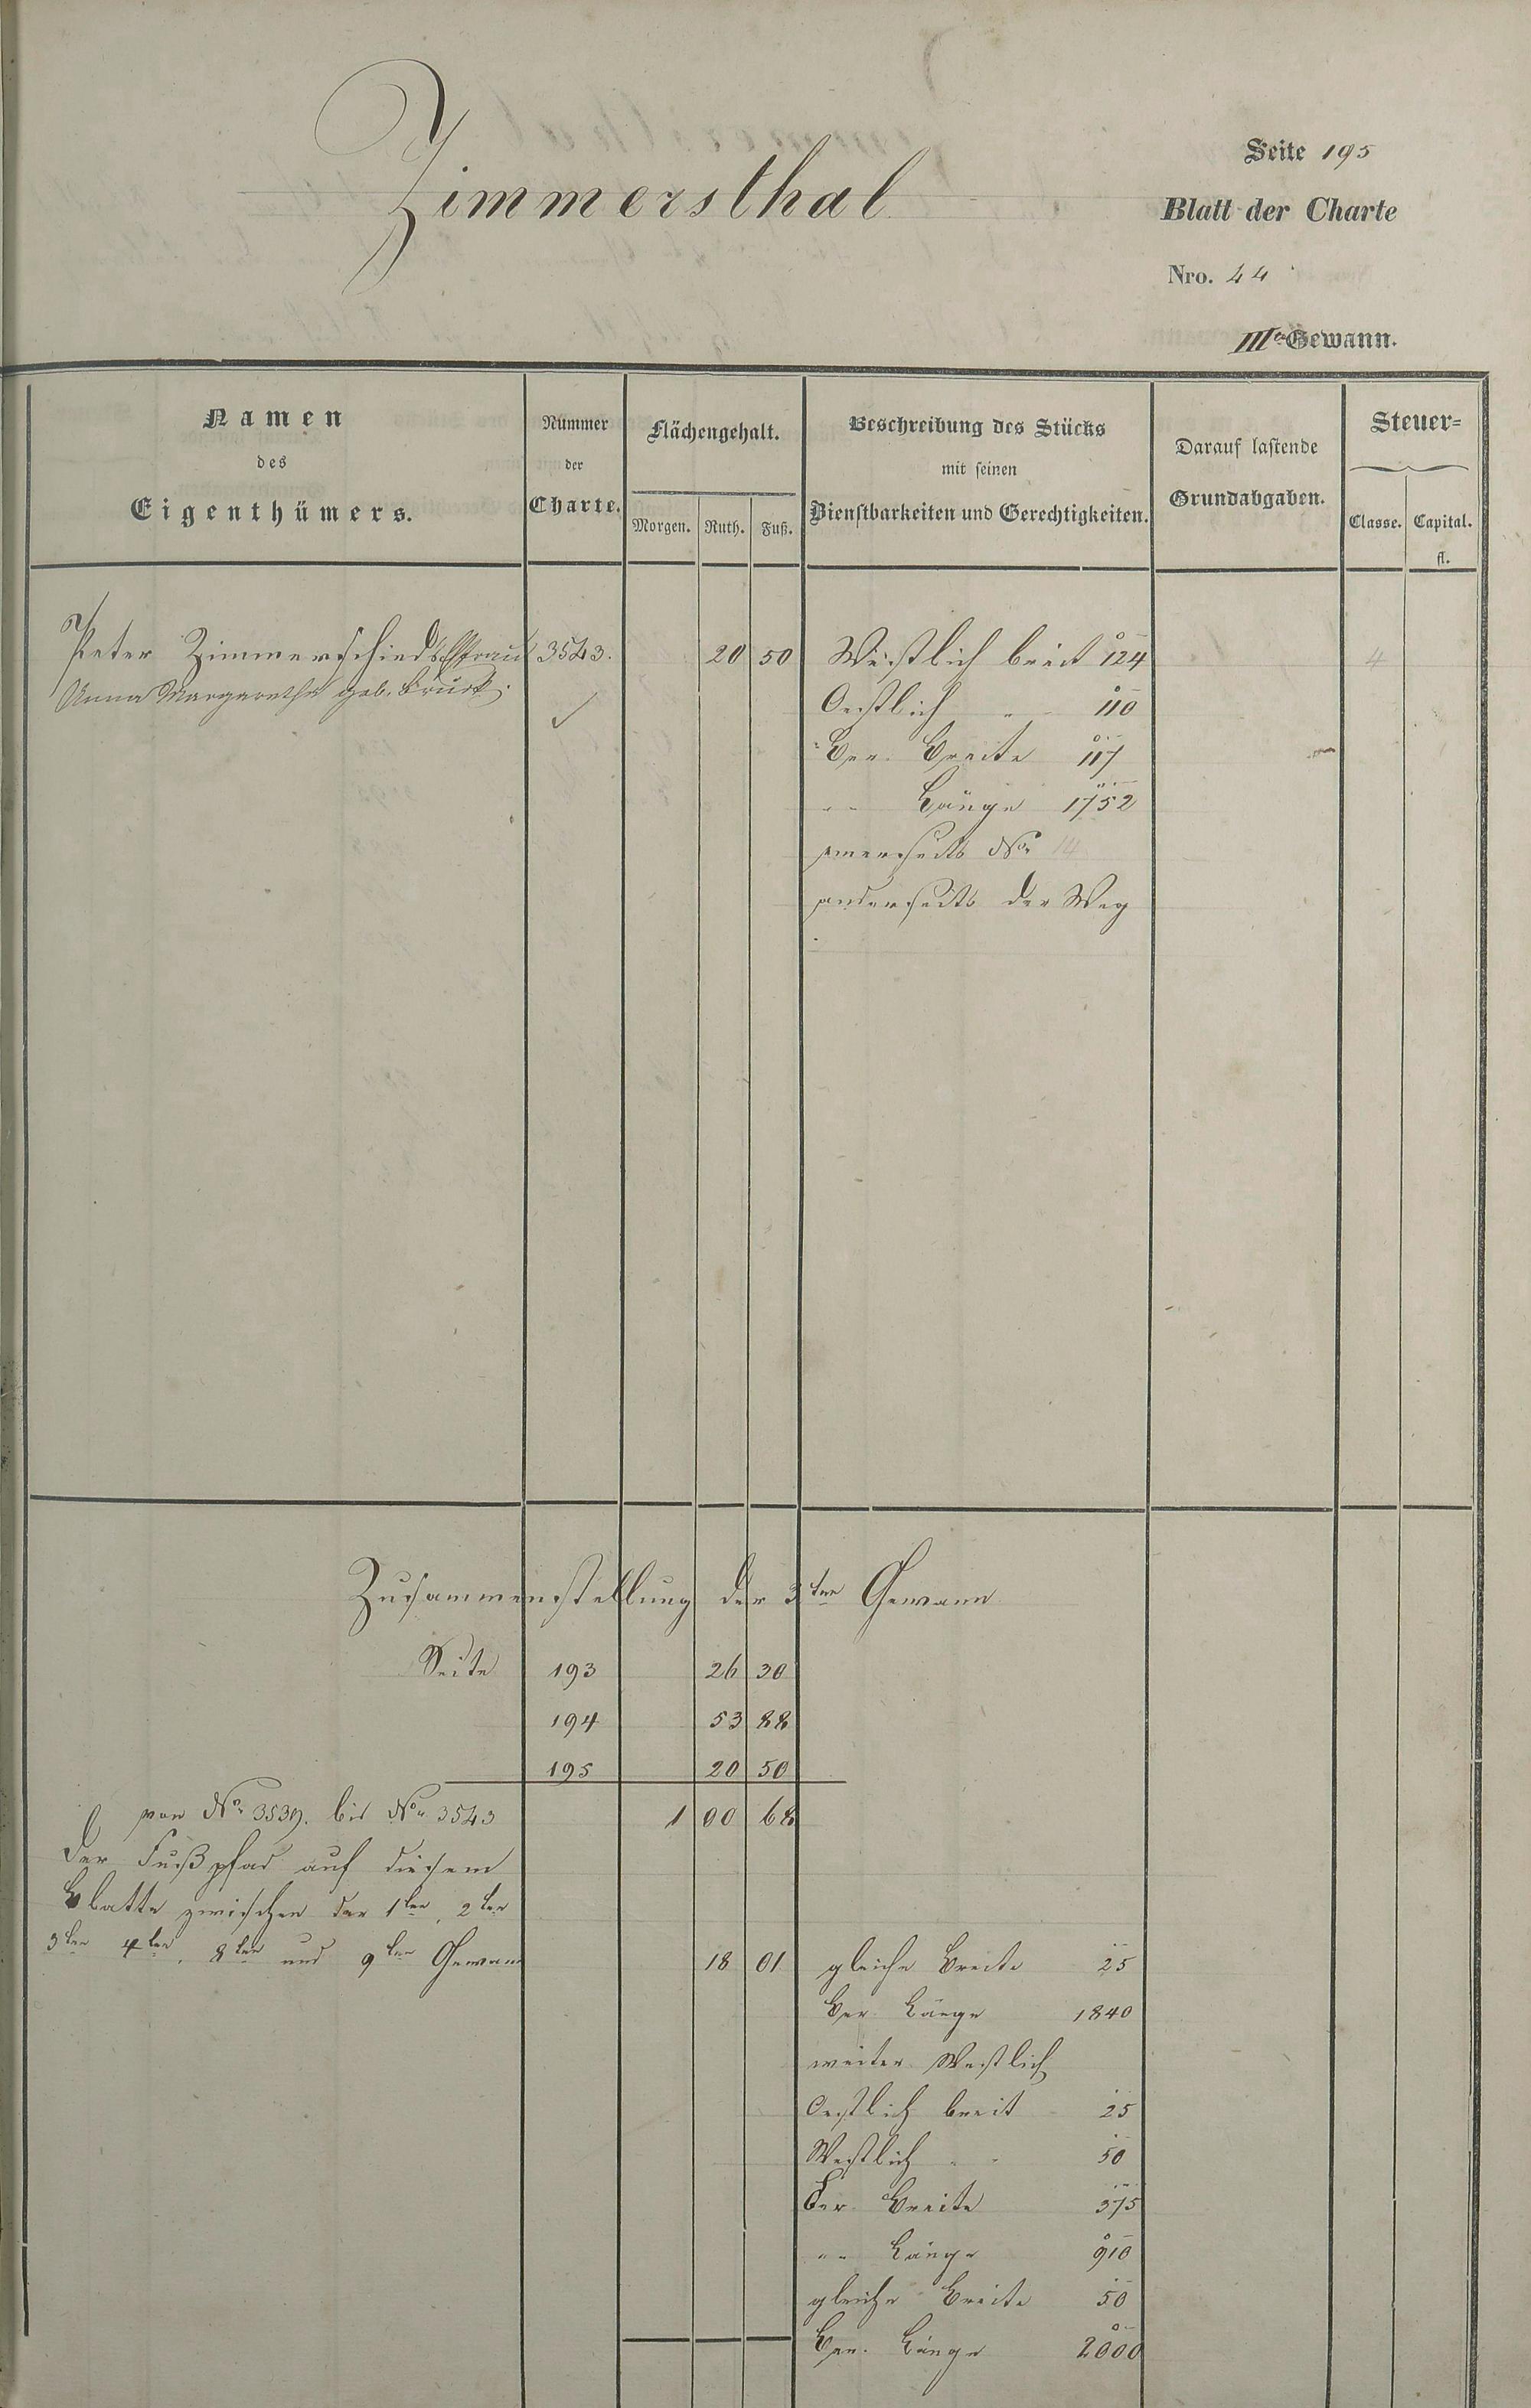 Zimmersthal
Seite 195
Blatt der Charte
Nro. 44
IIIte Gewann.
Namen
des
Eigenthümers.
Nummer
der
Charte.
Flächengehalt.
Morgen. Ruth. Fuß.
Beschreibung des Stücks
mit seinen
Dienstbarkeiten und Gerechtigkeiten.
Darauf lastende
Grundabgaben.
Steuer-
Classe. Capital.
fl.
Peter Zimmerschieds Ehfrau 3543. 20 50 Westlich breit 124 4
Anna Margaretha geb.
Oestlich " 110
Ber. Breite 117
" " Länge 1752
einerseits No. 14
anderseits der Weg
Zusammenstellung der 3ten Gewann
Seite 193 26 30
194 53 88
195 20 50
von No. 3539. bis No. 3543 1 00 68
Der Fußpfad auf diesem
Blatte zwischen der 1ten, 2ten
3ten 4ten, 8ten und 9ten Gewann 18 01 gleiche Breite 25
Ber. Länge 1840
weiter Westlich
Oestlich breit 25
Westlich " " 50
Ber. Breite 375
" " Länge 910
gleiche Breite 50
Ber. Länge 2000